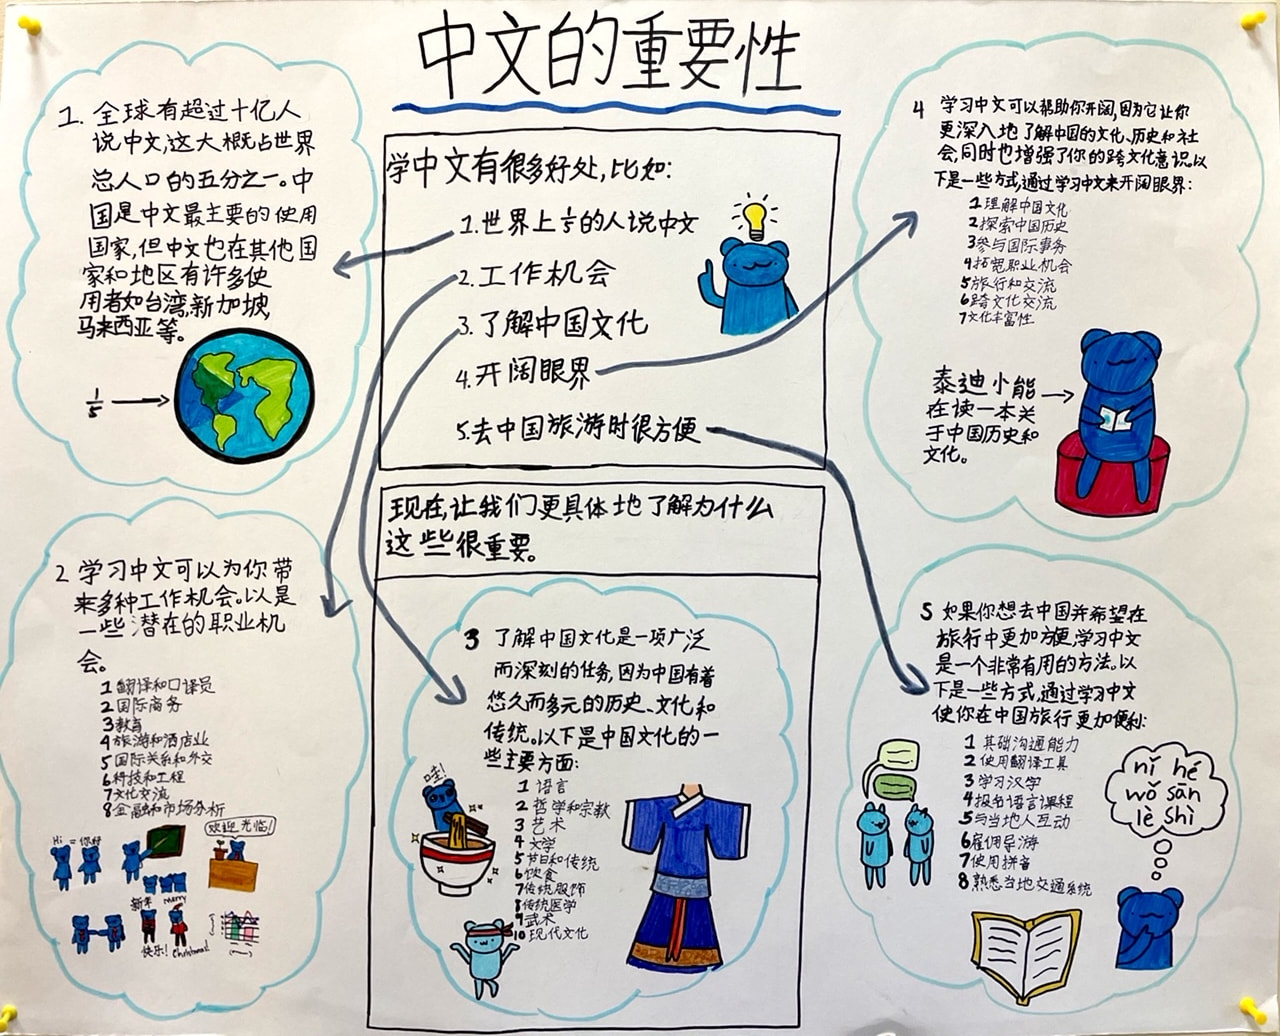 中文的重要性
学中文有很多好处,比如:
1.世界上⅕的人说中文
2.工作机会
3.了解中国文化
4.开阔眼界
5.去中国旅游时很方便
现在,让我们更具体地了解为什么
这些很重要。
1. 全球有超过十亿人
说中文,这大概占世界
总人口的五分之一。中
国是中文最主要的使用
国家,但中文也在其他国
家和地区有许多使
用者如台湾,新加坡,
马来西亚等。
1/5
2 学习中文可以为你带
来多种工作机会。以是
一些潜在的职业机
会。
1 翻译和口译员
2 国际商务
3 教育
4 旅游和酒店业
5 国际关系和外交
6 科技和工程
7 文化交流
8 金融和市场分析
Hi = 你好
欢迎光临!
新年 merry
快乐! Christmas!
3 了解中国文化是一项广泛
而深刻的任务,因为中国有着
悠久而多元的历史、文化和
传统。以下是中国文化的一
些主要方面:
1 语言
2 哲学和宗教
3 艺术
4 文学
5 节日和传统
6 饮食
7 传统服饰
8 传统医学
9 武术
10 现代文化
哇!
4 学习中文可以帮助你开阔,因为它让你
更深入地了解中国的文化、历史和社
会,同时也增强了你的跨文化意识。以
下是一些方式,通过学习中文来开阔眼界:
1 理解中国文化
2 探索中国历史
3 参与国际事务
4 拓宽职业机会
5 旅行和交流
6 跨文化交流
7 文化丰富性
泰迪小能
在读一本关
于中国历史和
文化。
5 如果你想去中国并希望在
旅行中更加方便,学习中文
是一个非常有用的方法。以
下是一些方式,通过学习中文
使你在中国旅行更加便利:
1 基础沟通能力
2 使用翻译工具
3 学习汉字
4 报名语言课程
5 与当地人互动
6 雇佣导游
7 使用拼音
8 熟悉当地交通系统
nǐ hé
wǒ sān
lè shì